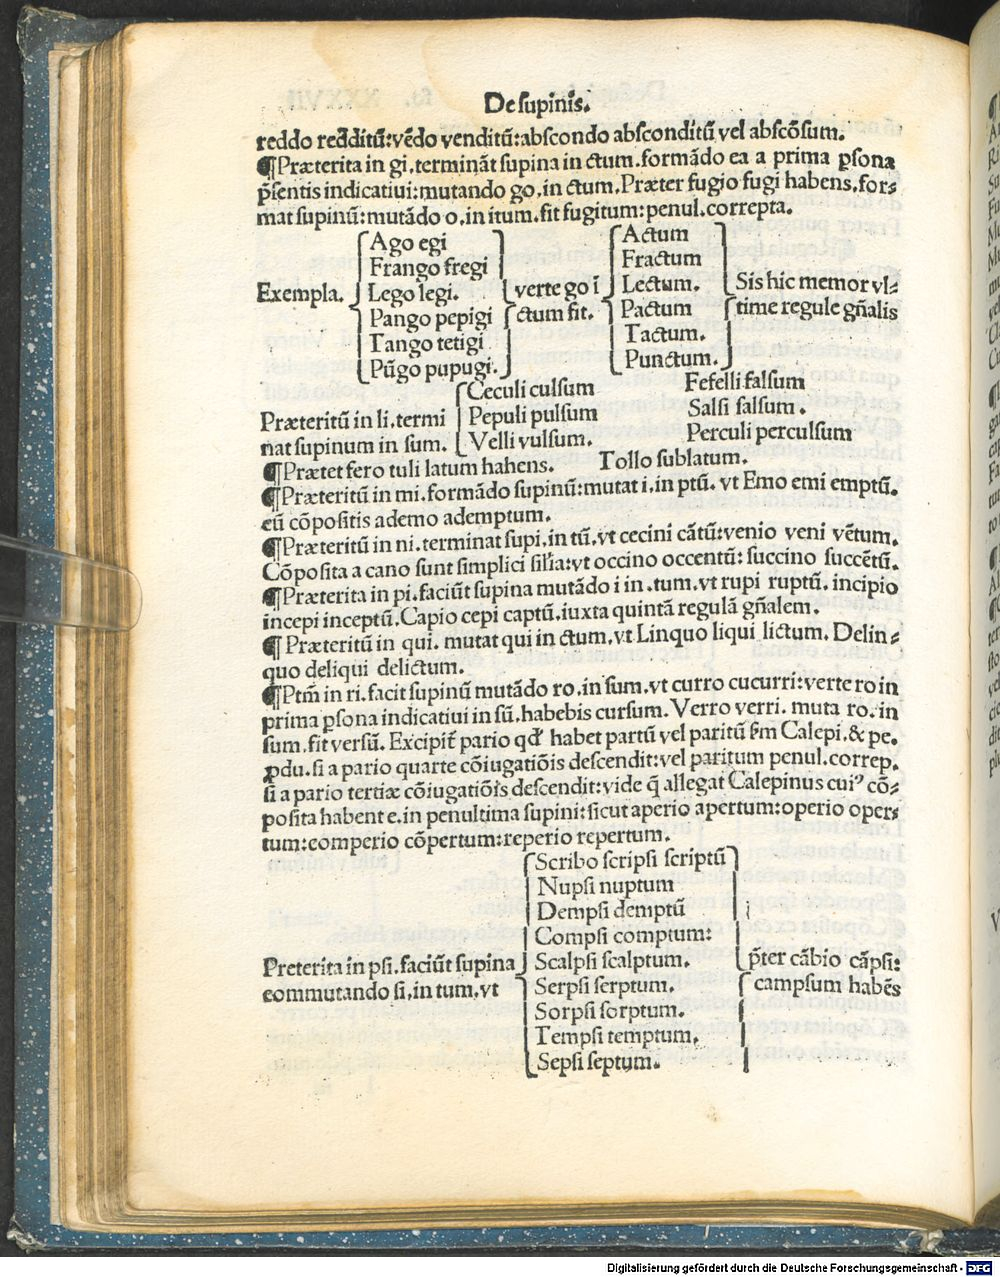 De supinis.
reddo redditū: vēdo venditū: abscondo absconditū vel abscōsum.
¶ Præterita in gi. termināt supina in ctum. formādo ea a prima ꝑsona
p̄sentis indicatiui: mutando go. in ctum. Præter fugio fugi habens, for⸗
mat supinū: mutādo o. in itum. fit fugitum: penul. correpta.
Exempla.
Ago egi
Frango fregi
Lego legi.
Pango pepigi
Tango tetigi
Pūgo pupugi.
verte go ī
ctum fit.
Actum
Fractum
Lectum.
Pactum
Tactum.
Punctum.
Sis hic memor vl⸗
time regule gn̄alis
Præteritū in li. termi
nat supinum in sum.
Ceculi culsum
Pepuli pulsum
Velli vulsum.
Fefelli falsum
Salsi salsum.
Perculi perculsum
¶ Prætet fero tuli latum hahens. Tollo sublatum.
¶ Præteritū in mi. formādo supinū: mutat i. in ptū. vt Emo emi emptū.
eū cōpositis ademo ademptum.
¶ Præteritū in ni. terminat supi. in tū. vt cecini cātū: venio veni vētum.
Cōposita a cano sunt simplici sīlia: vt occino occentū: succino succētū.
¶ Præterita in pi. faciūt supina mutādo i in .tum. vt rupi ruptū. incipio
incepi inceptū. Capio cepi captū. iuxta quintā regulā gn̄alem.
¶ Præteritū in qui. mutat qui in ctum. vt Linquo liqui lictum. Delin⸗
quo deliqui delictum.
¶ Ptm̄ in ri. facit supinū mutādo ro. in sum. vt curro cucurri: verte ro in
prima ꝑsona indicatiui in sū. habebis cursum. Verro verri. muta ro. in
sum. fit versū. Excipit̄ pario qd̓ habet partū vel paritū s̄m Calepi. & pe.
ꝓdu. si a pario quarte cōiugatiōis descendit: vel paritum penul. correp.
si a pario tertiæ cōiugatiōis descendit: vide q̄ allegat Calepinus cuiꝰ cō⸗
posita habent e. in penultima supini: sicut aperio apertum: operio oper⸗
tum: comperio cōpertum: reperio repertum.
Preterita in psi. faciūt supina
commutando si, in tum, vt
Scribo scripsi scriptū
Nupsi nuptum
Dempsi demptū
Compsi comptum:
Scalpsi scalptum.
Serpsi serptum.
Sorpsi sorptum.
Tempsi temptum.
Sepsi septum.
p̄ter cābio cāpsi:
campsum habēs
Digitalisierung gefördert durch die Deutsche Forschungsgemeinschaft - DFG